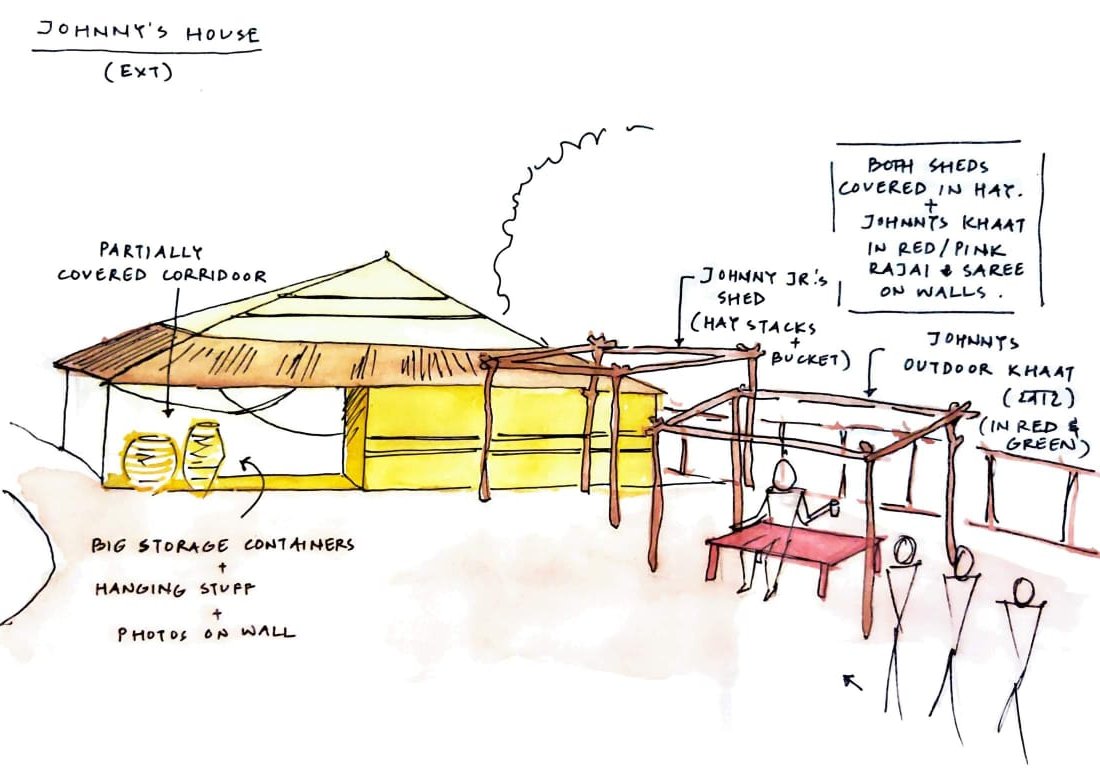 JOHNNY'S HOUSE
(EXT)
BOTH SHEDS
COVERED IN HAY.
+
JOHNNYS KHAAT
IN RED/PINK
RAJAI & SAREE
ON WALLS.
PARTIALLY
COVERED CORRIDOOR
JOHNNY JR.'S
SHED
(HAY STACKS
+
BUCKET)
JOHNNYS
OUTDOOR KHAAT
(खाट)
(IN RED &
GREEN)
BIG STORAGE CONTAINERS
+
HANGING STUFF
+
PHOTOS ON WALL